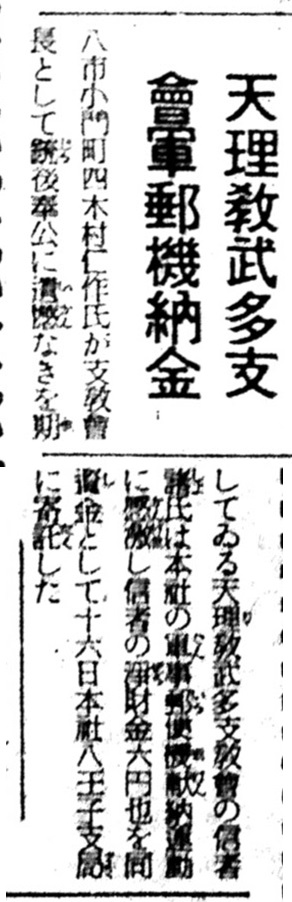 天理教武多支
會軍郵機納金
八市小門町四木村仁作氏が支教會
長として銃後奉公に遺憾なきを期
してゐる天理教武多支教會の信者
諸氏は本社の軍事郵便機献納運動
に感激し信者の淨財金六円也を同
資金として十六日本社八王子支局
に寄託した